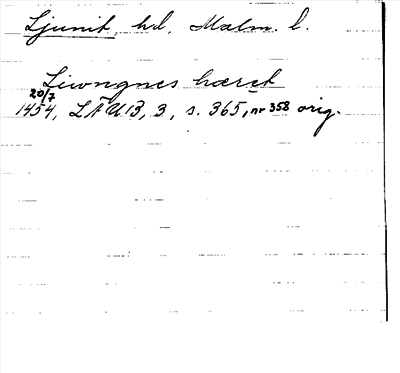 Ljunit, hd, Malm. l.
Liwngnes hæret
20/7
1454, LÄUB, 3, s. 365, nr 358 orig.